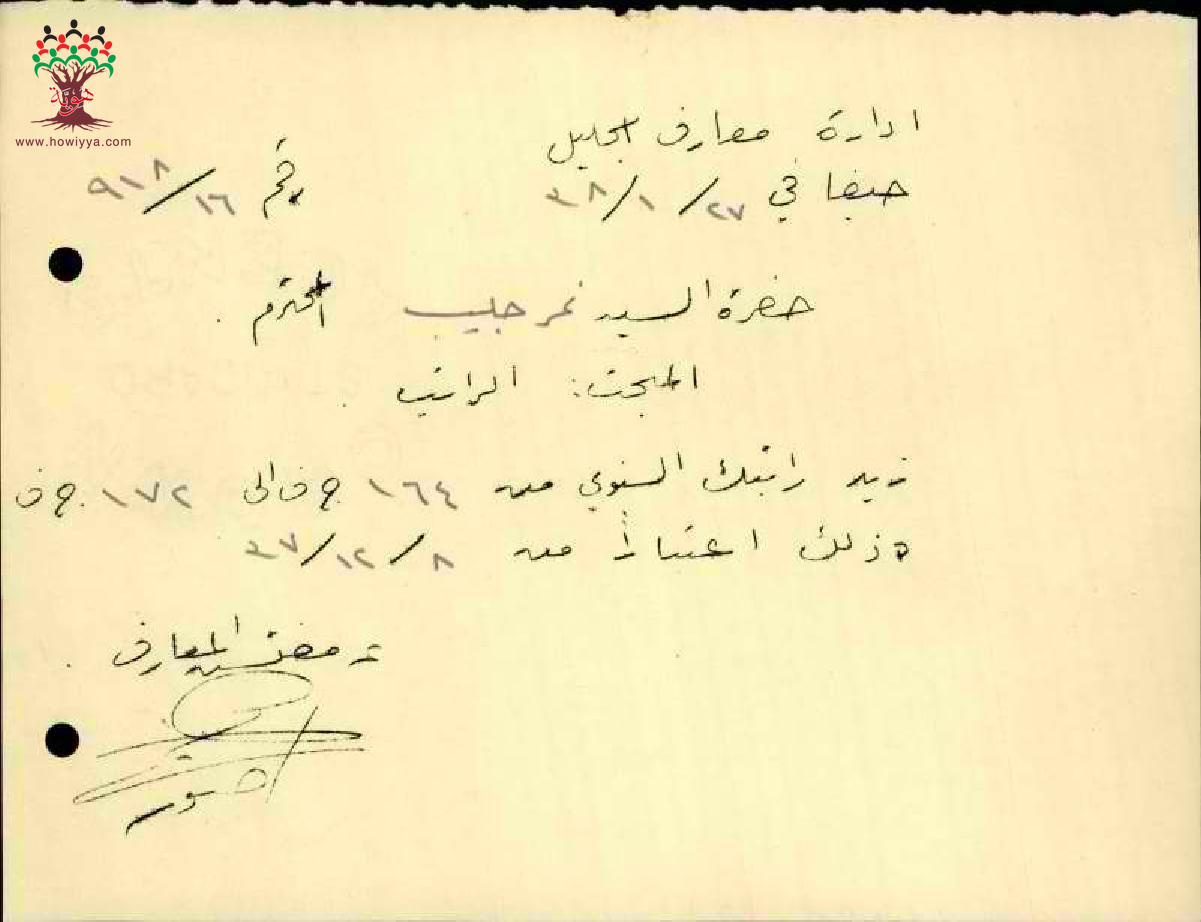 هوية
www.howiyya.com
ادارة معارف الجليل
حيفا في ٢٧/١/٣٨ رقم ١٦/٩١٨
حضرة السيد نمر حليب المحترم .
المبحث: الراتب .
زيد راتبك السنوي من ١٦٤ ج ف الى ١٧٢ ج ف
وذلك اعتباراً من ٨/١٢/٣٧
عن مفتش المعارف .